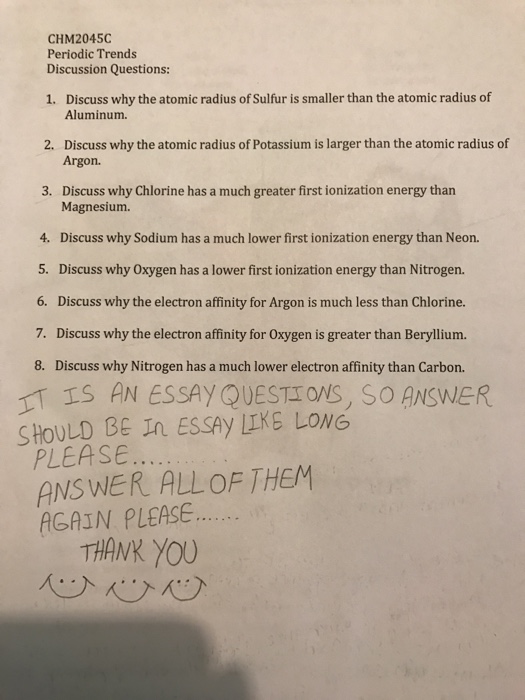 CHM2045C
Periodic Trends
Discussion Questions:
1. Discuss why the atomic radius of Sulfur is smaller than the atomic radius of
Aluminum.
2. Discuss why the atomic radius of Potassium is larger than the atomic radius of
Argon.
3. Discuss why Chlorine has a much greater first ionization energy than
Magnesium.
4. Discuss why Sodium has a much lower first ionization energy than Neon.
5. Discuss why Oxygen has a lower first ionization energy than Nitrogen.
6. Discuss why the electron affinity for Argon is much less than Chlorine.
7. Discuss why the electron affinity for Oxygen is greater than Beryllium.
8. Discuss why Nitrogen has a much lower electron affinity than Carbon.
IT IS AN ESSAY QUESTIONS, SO ANSWER
SHOULD BE In ESSAY LIKE LONG
PLEASE...........
ANSWER ALL OF THEM
AGAIN PLEASE.......
THANK YOU